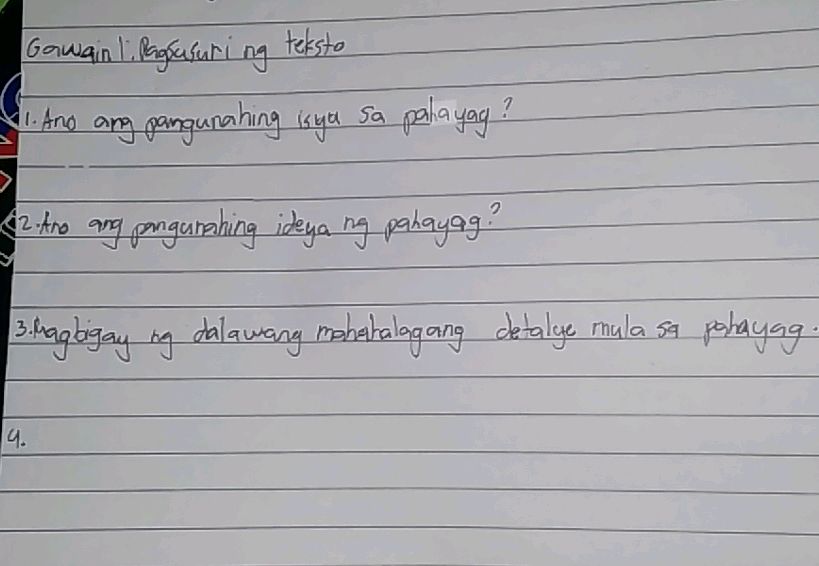 Gawain 1. Pagsusuri ng teksto
1. Ano ang pangunahing isyu sa pahayag?
2. Ano ang pangunahing ideya ng pahayag?
3. Magbigay ng dalawang mahahalagang detalye mula sa pahayag.
4.